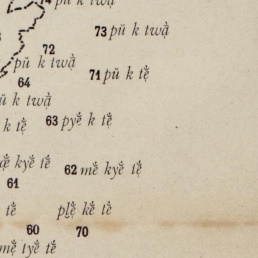 74 pŭ k twạ̊
73 pŭ k twạ̊
72
pŭ k twạ̊
64
71 pŭ k tẹ̊
ŭ k twạ̊
k tẹ̊
63 pyẹ̊ k tẹ̊
kyẹ̊ tẹ̊
62 mẹ̊ kyẹ̊ tẹ̊
61
tẹ̊
plẹ̊ kẹ̊ tẹ̊
60
70
mẹ̊ tyẹ̊ tẹ̊